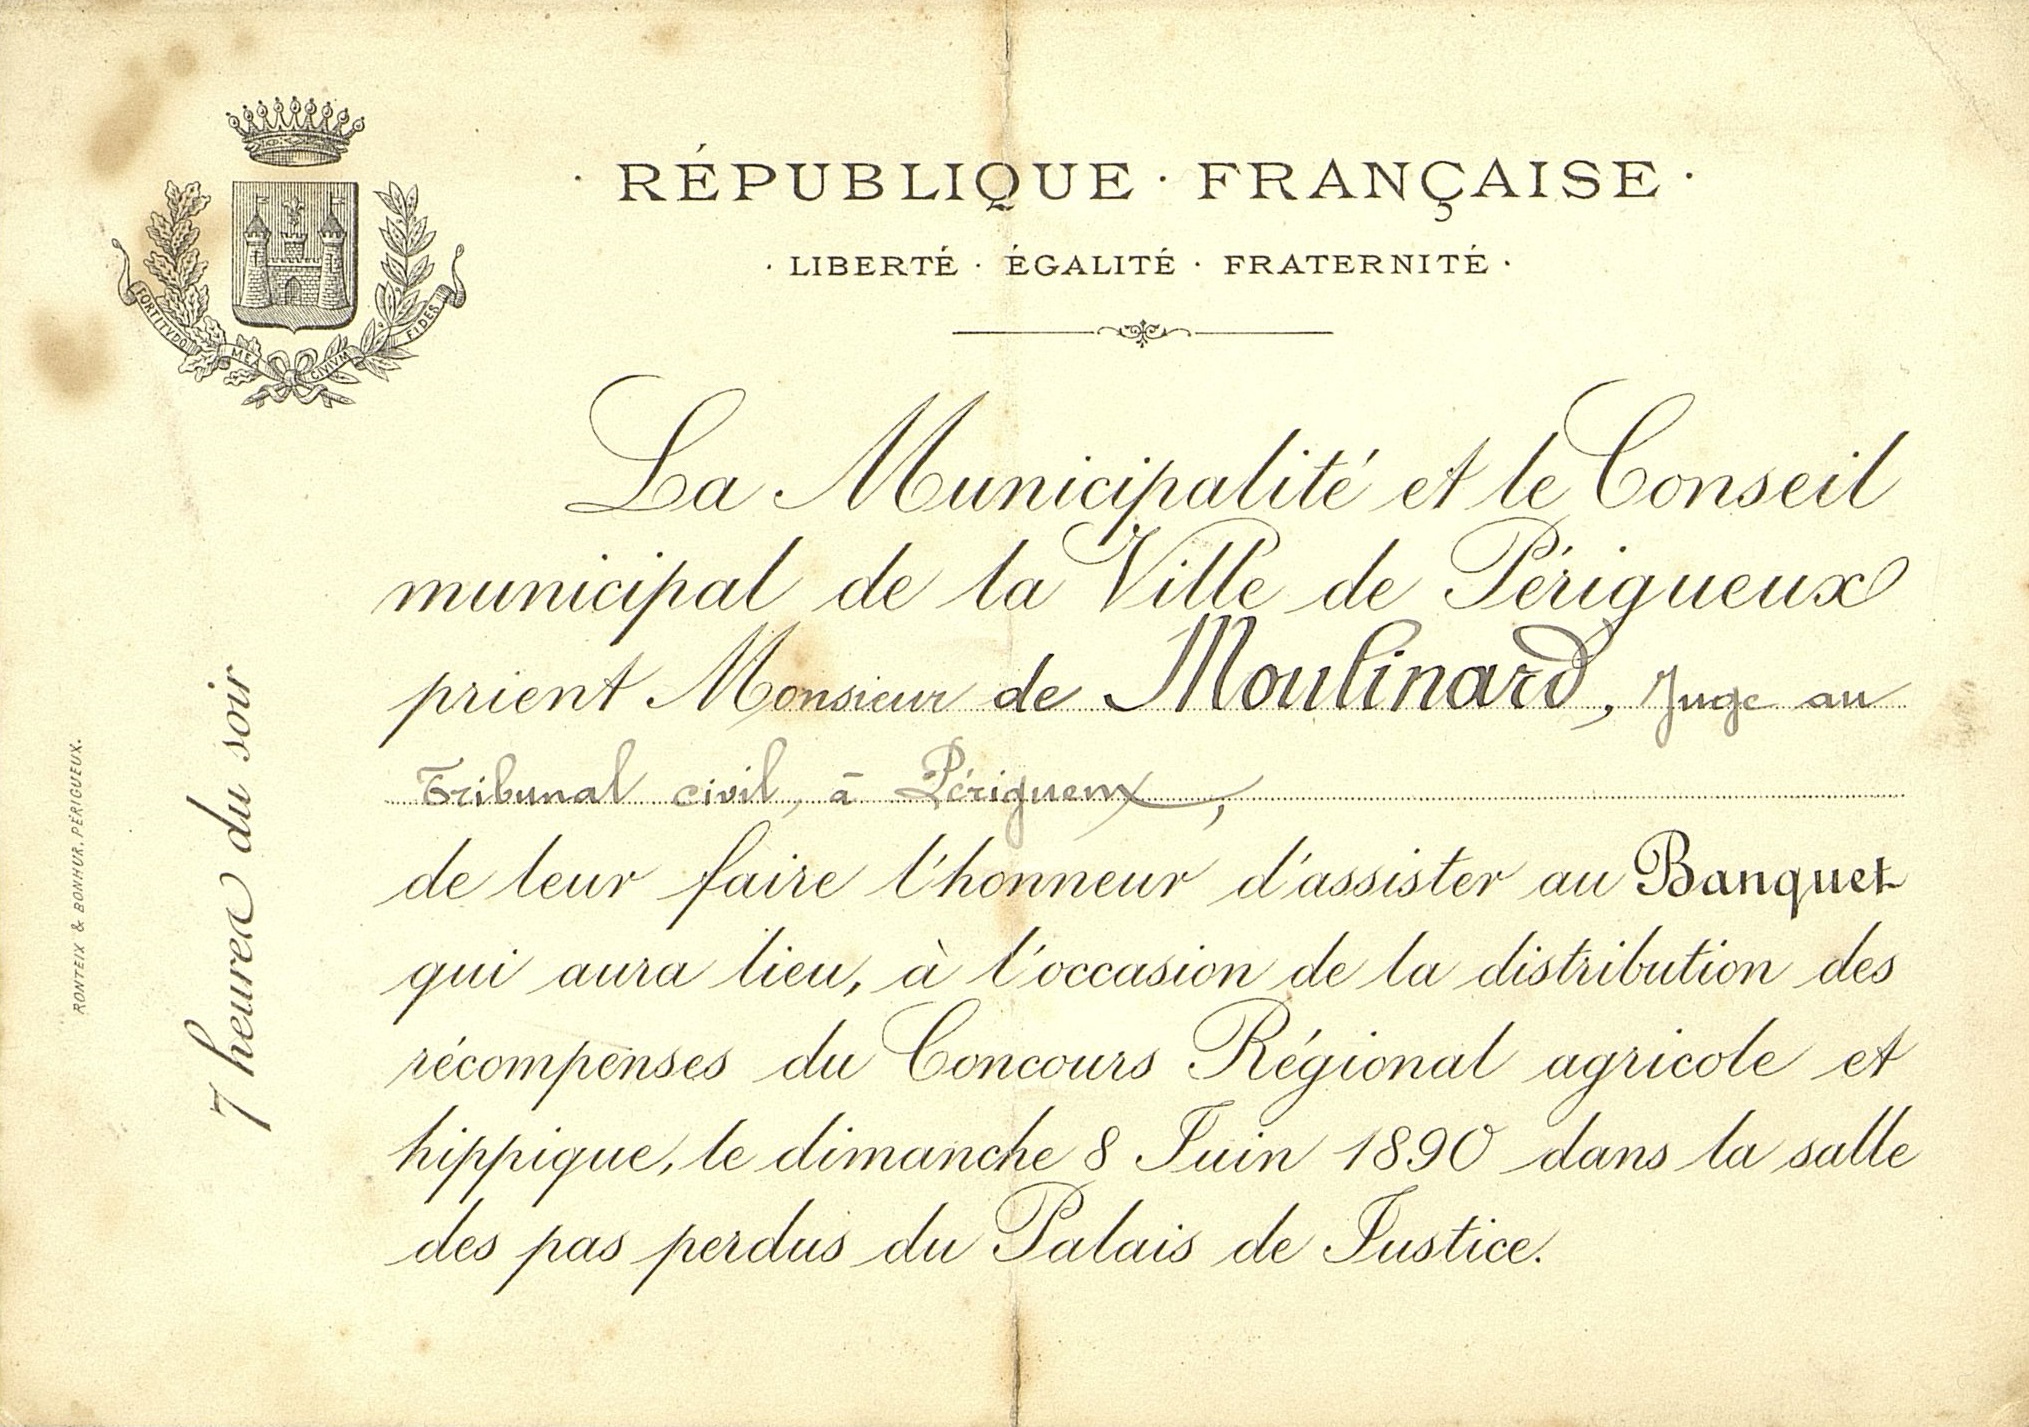 · RÉPUBLIQUE · FRANÇAISE ·
· LIBERTÉ · ÉGALITÉ · FRATERNITÉ ·
FORTITVDO MEA CIVIVM FIDES
La Municipalité et le Conseil
municipal de la Ville de Périgueux
prient Monsieur de Moulinard, Juge au
Tribunal civil, à Périgueux,
de leur faire l'honneur d'assister au Banquet
qui aura lieu, à l'occasion de la distribution des
récompenses du Concours Régional agricole et
hippique, le dimanche 8 Juin 1890 dans la salle
des pas perdus du Palais de Justice.
7 heures du soir
RONTEIX & BONHUR, PÉRIGUEUX.